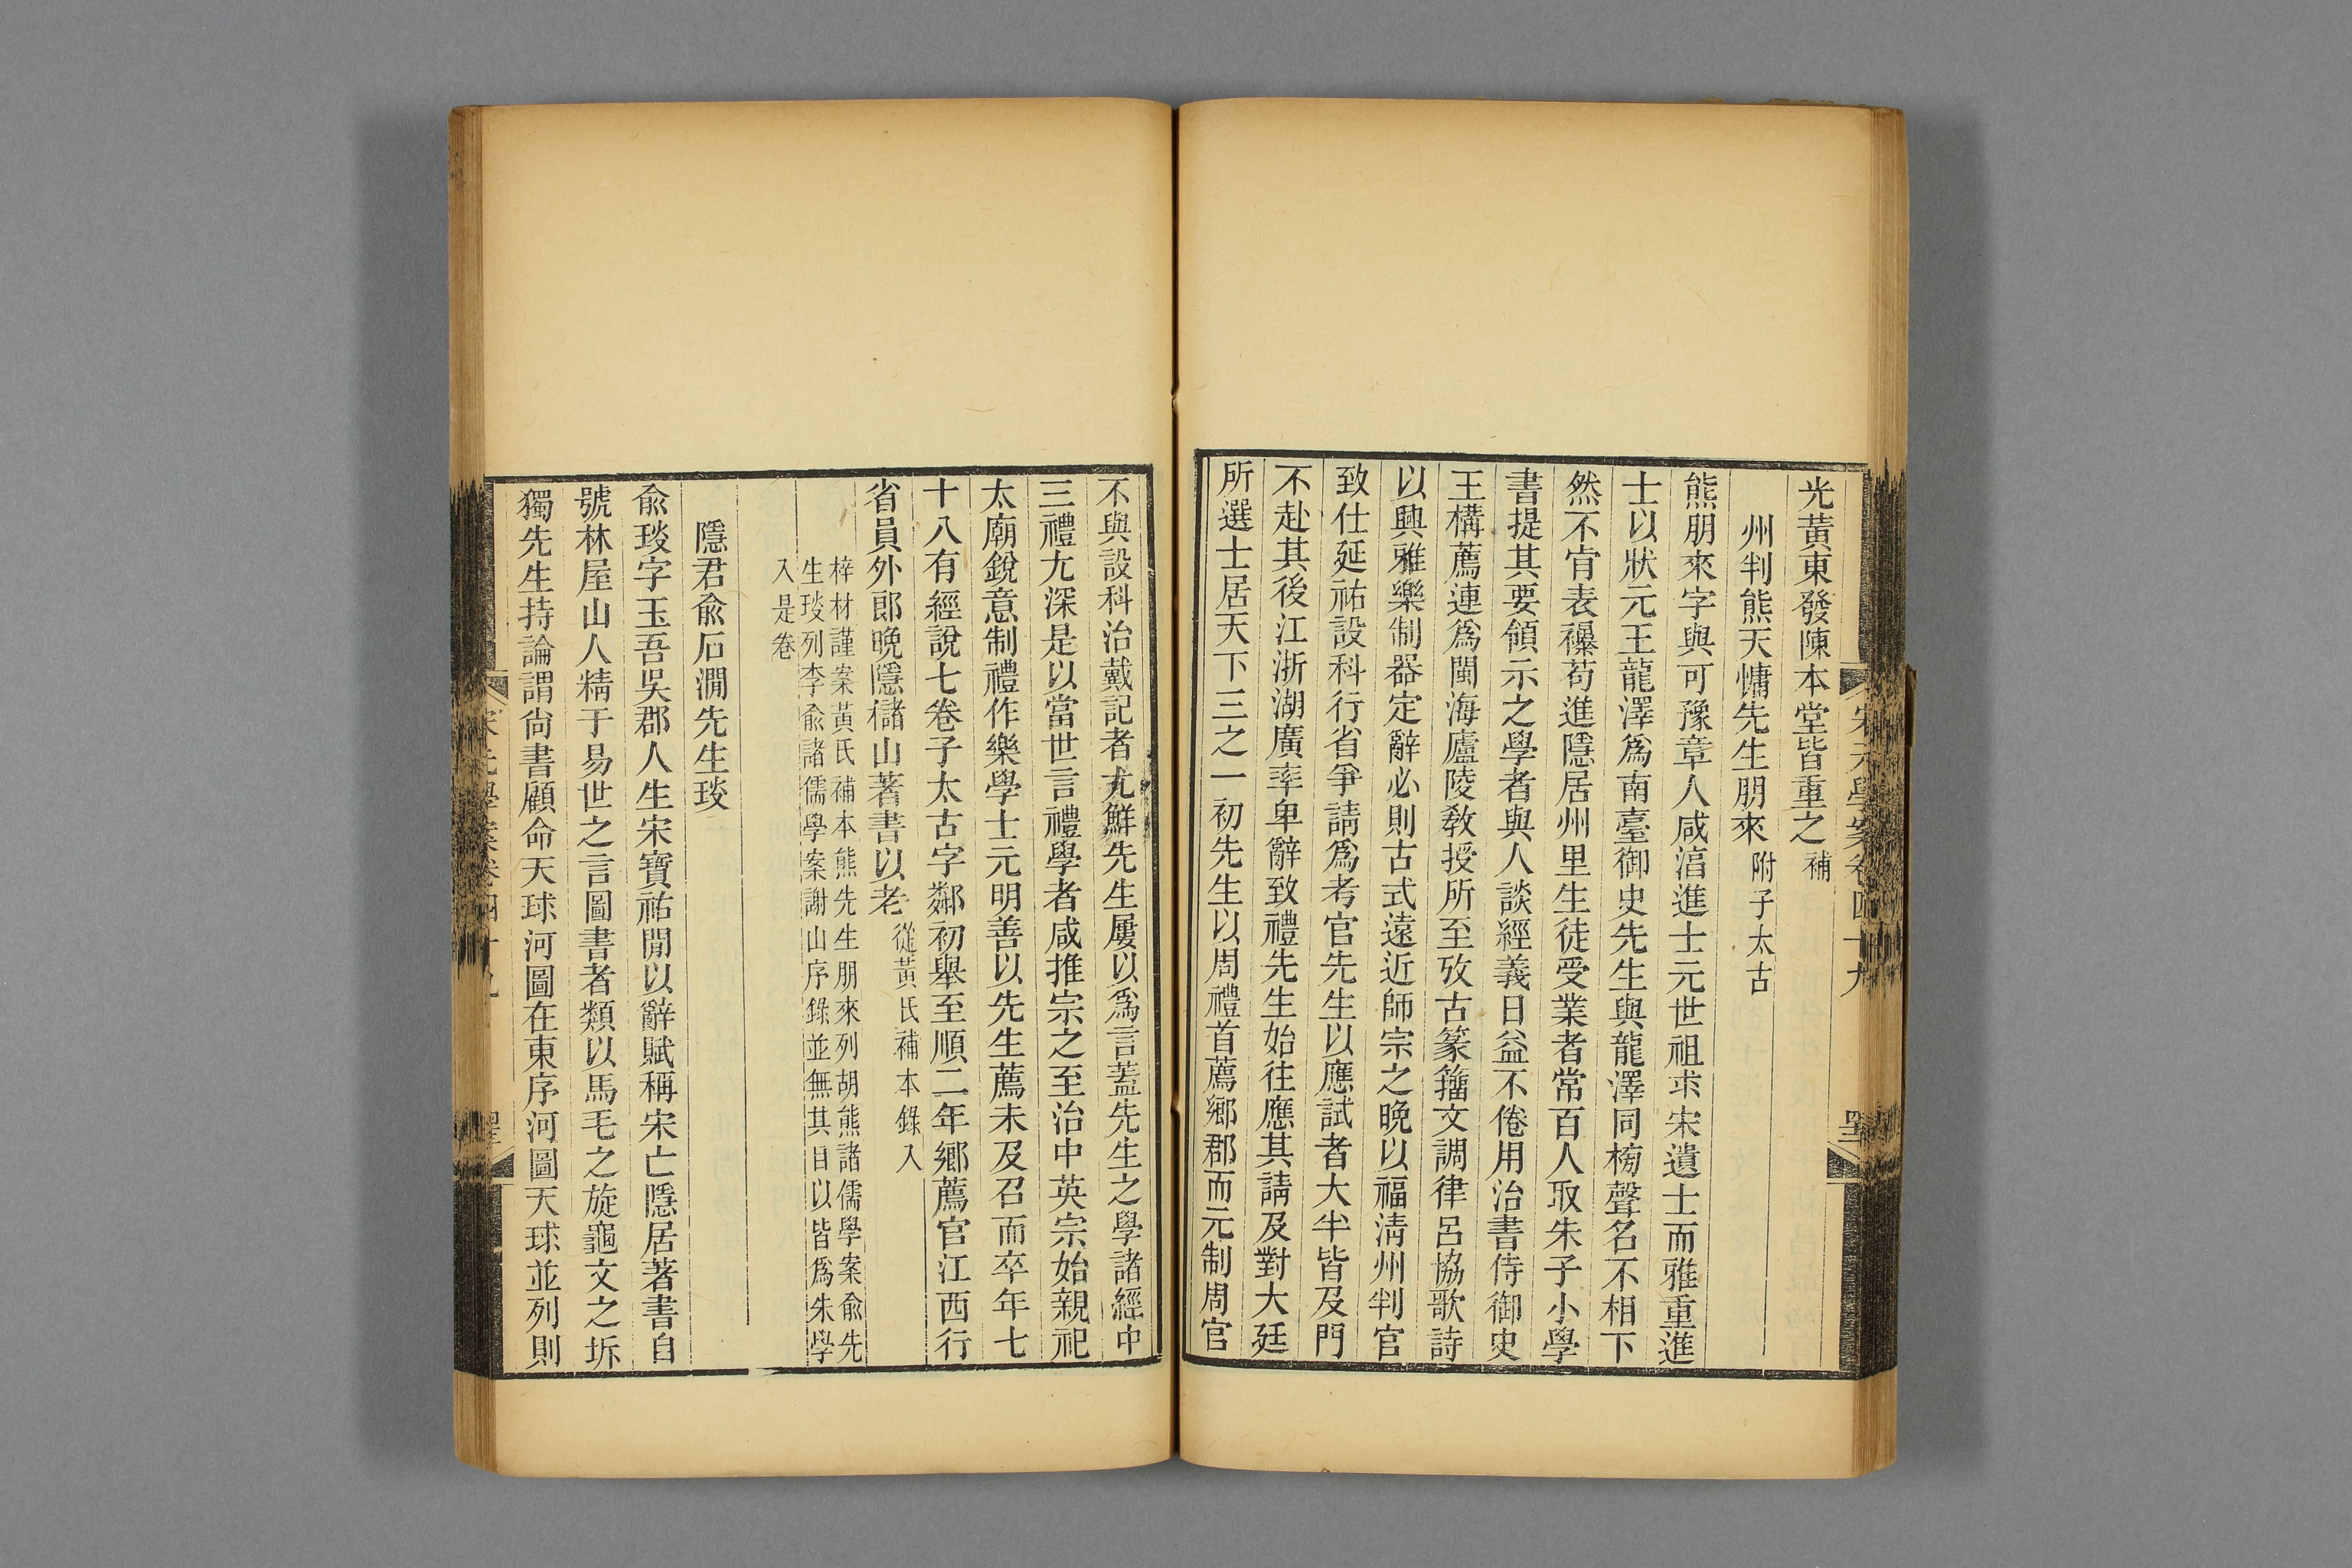 光黃東發陳本堂皆重之補
州判熊天慵先生朋來附子太古
熊朋來字與可豫章人咸淳進士元世祖求宋遺士而雅重進
士以狀元王龍澤爲南臺御史先生與龍澤同榜聲名不相下
然不肯表襮苟進隱居州里生徒受業者常百人取朱子小學
書提其要領示之學者與人談經義日益不倦用治書侍御史
王構薦連爲閩海廬陵敎授所至攷古篆籀文調律呂協歌詩
以興雅樂制器定辭必則古式遠近師宗之晚以福淸州判官
致仕延祐設科行省爭請爲考官先生以應試者大半皆及門
不赴其後江浙湖廣率卑辭致禮先生始往應其請及對大廷
所選士居天下三之一初先生以周禮首薦鄉郡而元制周官
宋元學案卷四十九
不與設科治戴記者尤鮮先生屢以爲言蓋先生之學諸經中
三禮尤深是以當世言禮學者咸推宗之至治中英宗始親祀
太廟銳意制禮作樂學士元明善以先生薦未及召而卒年七
十八有經說七卷子太古字鄰初舉至順二年鄉薦官江西行
省員外郎晚隱儲山著書以老從黃氏補本錄入
梓材謹案黃氏補本熊先生朋來列胡熊諸儒學案兪先
生琰列李兪諸儒學案謝山序錄並無其目以皆爲朱學
入是卷
隱君兪石澗先生琰
兪琰字玉吾吳郡人生宋寶祐閒以辭賦稱宋亡隱居著書自
號林屋山人精于易世之言圖書者類以馬毛之旋龜文之坼
獨先生持論謂尙書顧命天球河圖在東序河圖天球並列則
宋元學案卷四十九